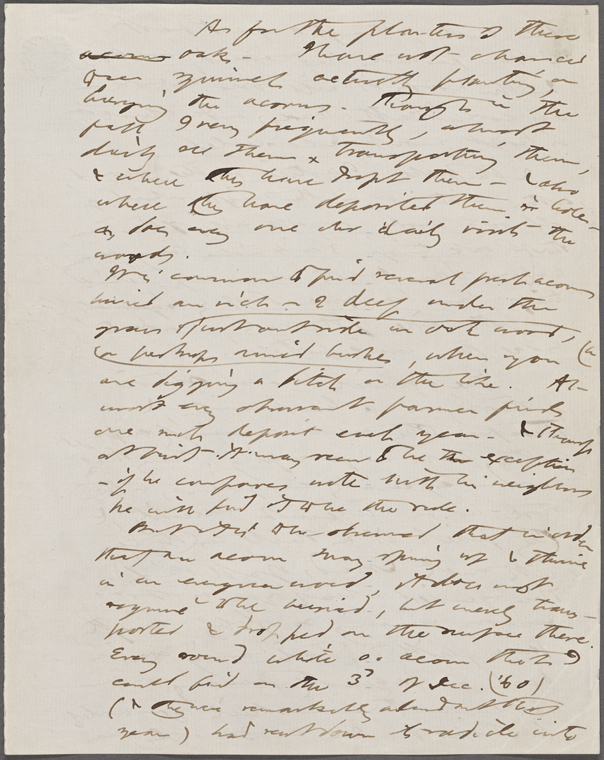 As for the planters of these
acorns oak - I have not chanced
to see squirrels actually planting, or
burying the acorns - Though in the
fall I very frequently, almost
daily see them & transporting them,
& where they have dropt them - & also
where they have deposited them in holes -
as does every one who daily visits the
woods.
It is common to find several fresh acorns
buried an inch - or 2 deep under the
grass just outside an oak wood, (or
or perhaps amid bushes, when you
are digging a ditch or the like. Al-
most every observant farmer finds
one such deposit each year - & though
at first it may seem to be the exception
- if he compares note with his neighbors
he will find it to be the rule.
But it is to be observed that in order
that an acorn may spring up & thrive
in an evergreen wood, it does not
require to be buried, but merely trans-
ported & dropped on the surface there.
Every sound white oak acorn that I
could find on the 3d of Dec. ('60)
(& they were remarkably abundant that
year) had sent down its radicle into